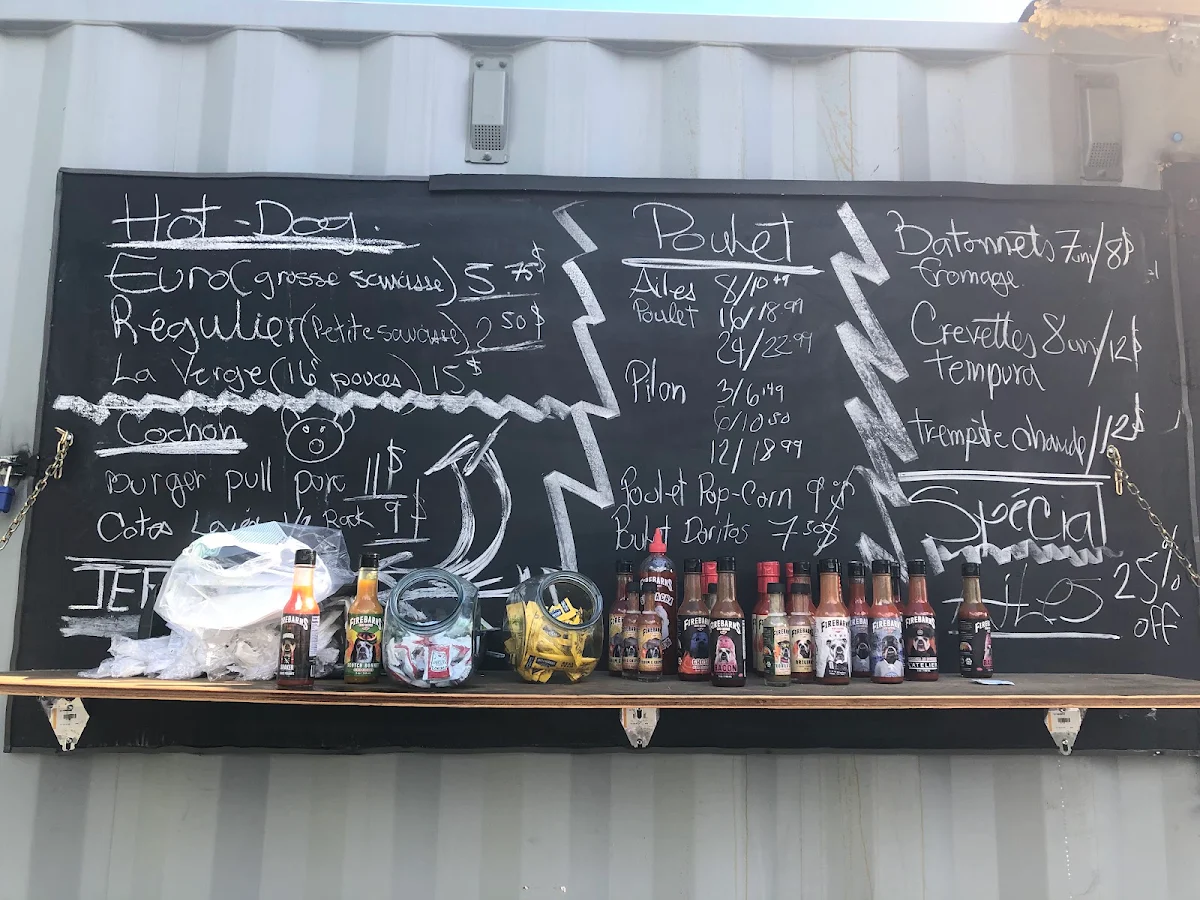 Hot-Dog.
Euro (grosse saucisse) 5 75$
Régulier (Petite saucisse) 2 50$
La Verge (16 pouces) 15$
Cochon
Burger pull porc 11$
Rack 9$
Poulet
Ailes 8/10 49
Poulet 16/18 99
24/22 99
Pilon 3/6 49
6/10 50
12/18 99
Poulet Pop-Corn 9$
Doritos 7 50$
Batonnets 7un/8$
fromage
Crevettes 8un/12$
tempura
trempète chaude/12$
Spécial
25%
off
FIREBARNS
FIREBARNS
FIREBARNS
FIREBARNS
FIREBARNS
FIREBARNS
FIREBARNS
L'ATELIER